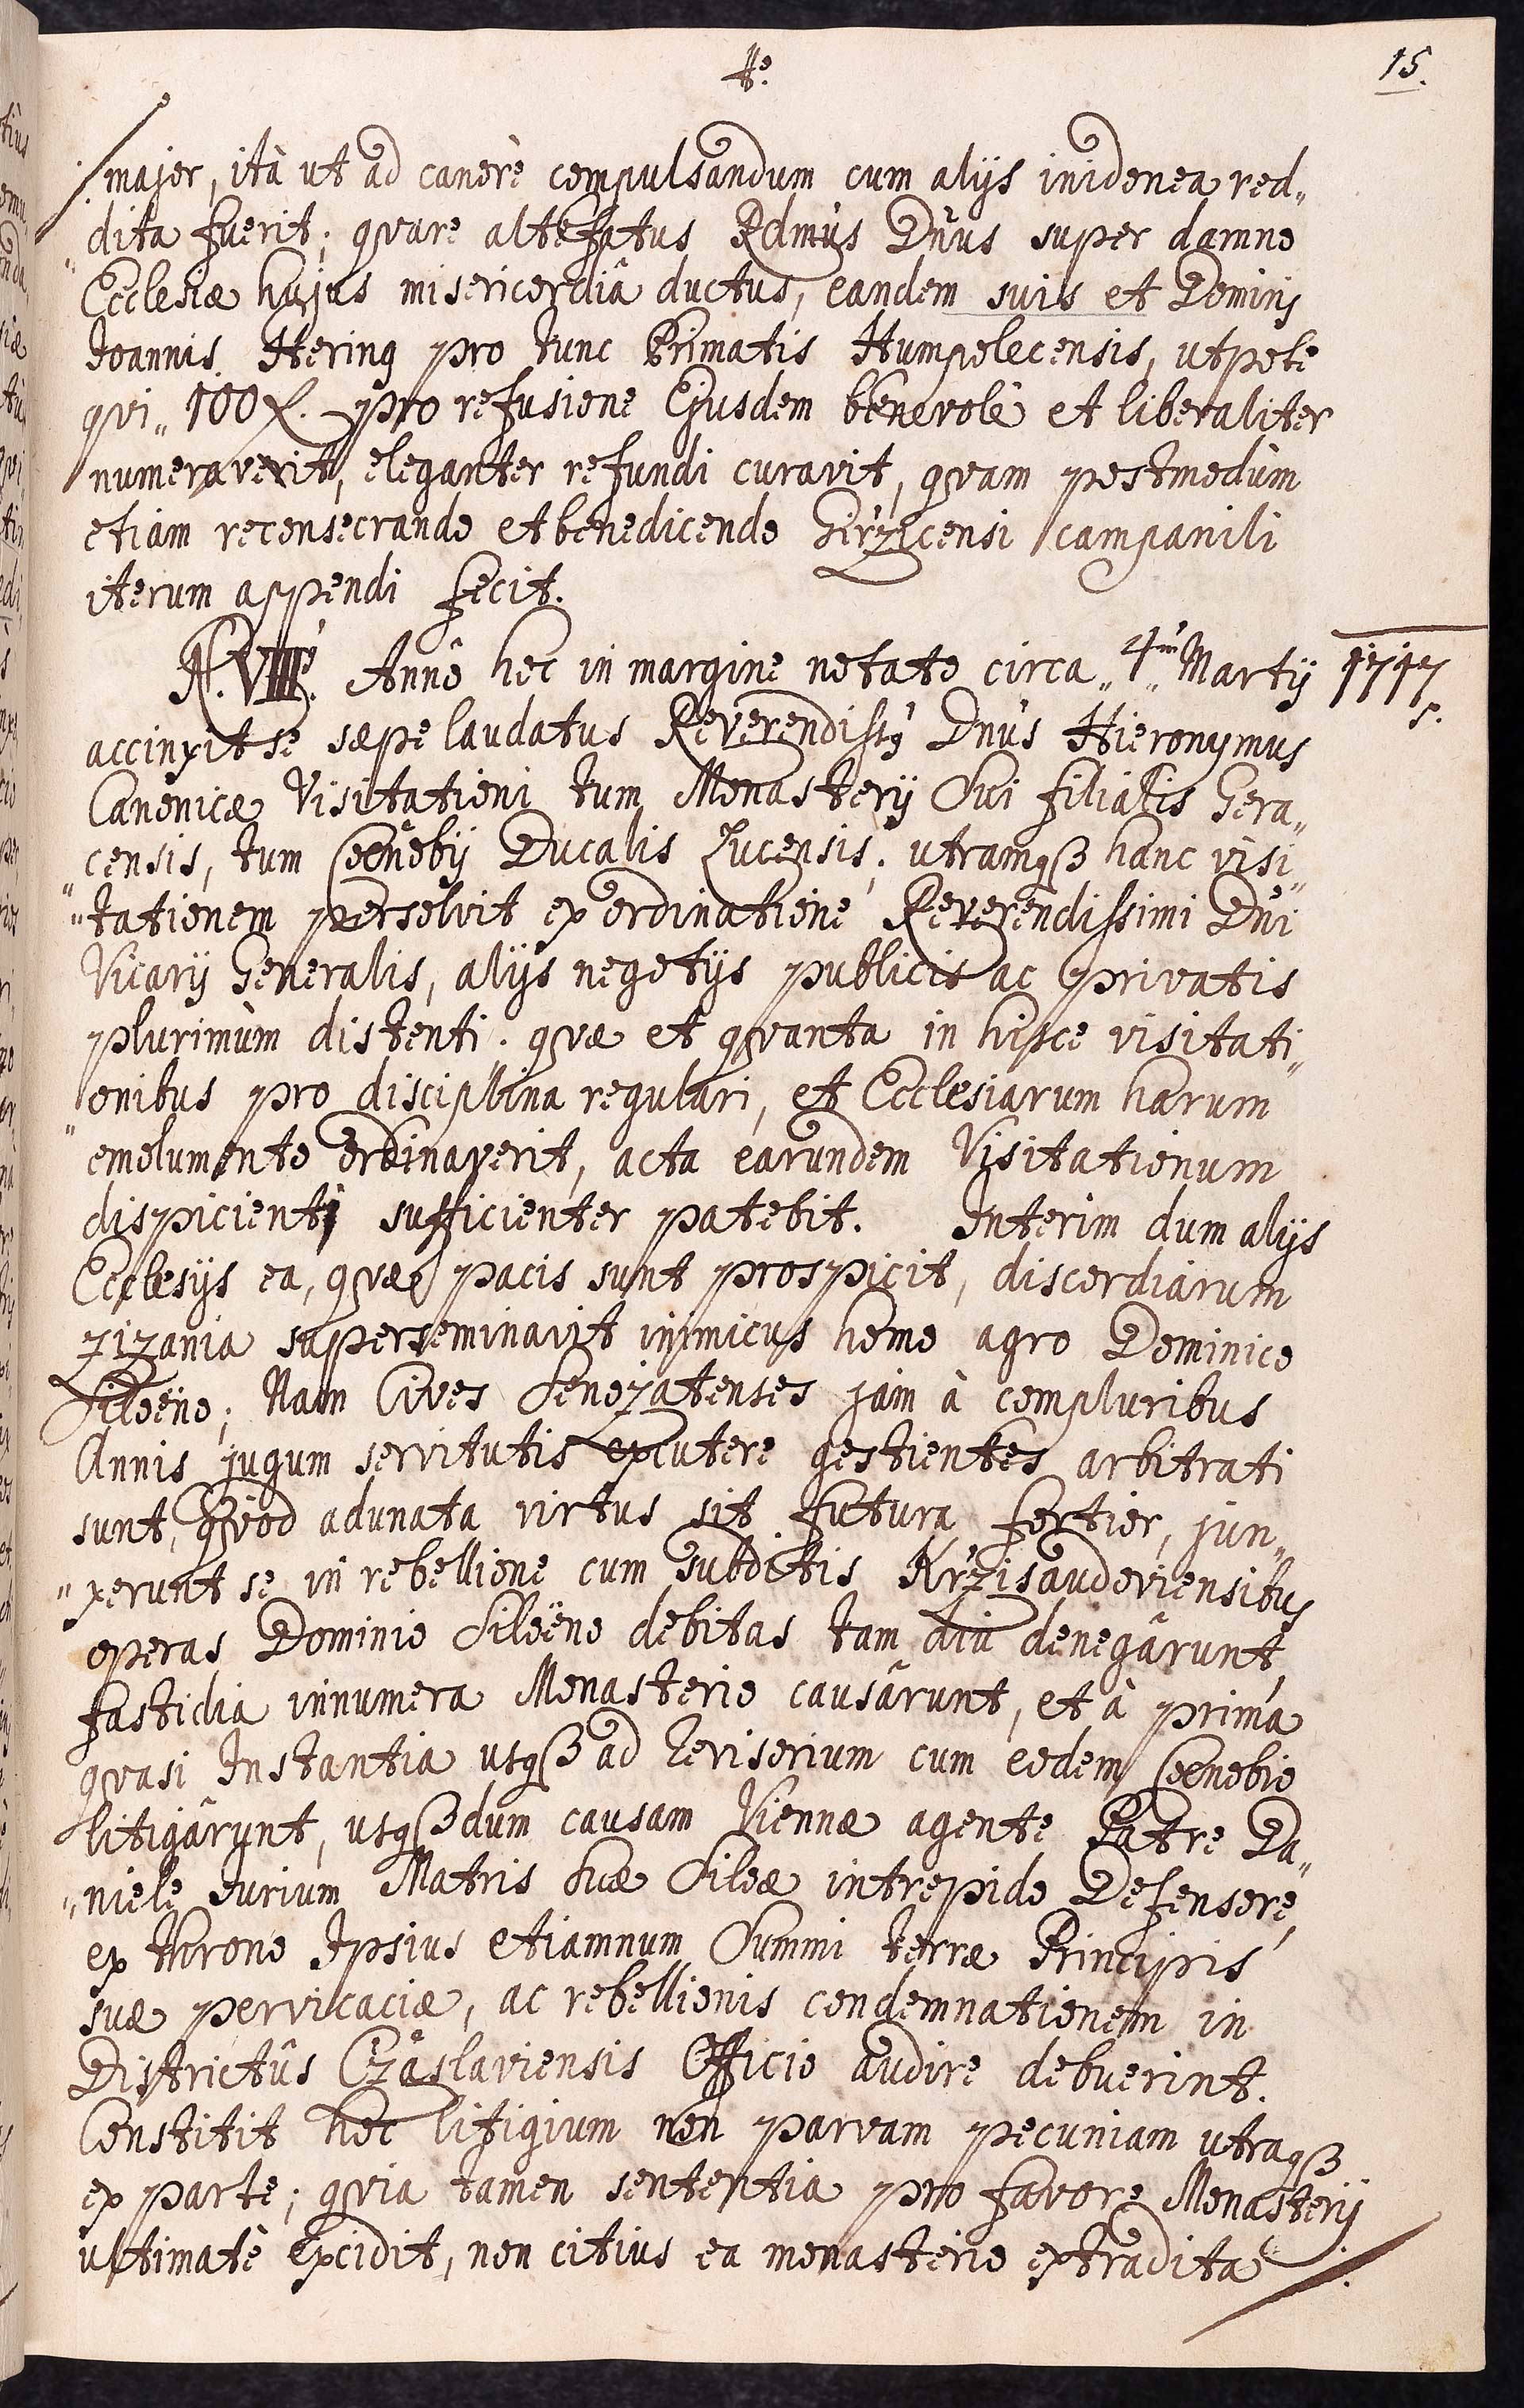 15.
major, ità ut ad canorè compulsandum cum alijs inidonea red„
„dita fuerit; qvare altefatus Rdmus Dnus super damno
Ecclesiæ hujus misericordiâ ductus, eandem suis et Domini
Joannis Hering pro tunc Primatis Humpolecensis, utpote
qvi „100 f. pro refusione Ejusdem benevolè et liberaliter
numeraverit, eleganter refundi curavit, qvam postmodùm
etiam reconsecrando et benedicendo Giržicensi campanili
iterum appendi fecit.
N. VIIIº. Annô hoc in margine notato circa „4tam„ Martij 1717
accinxit se sæpe laudatus Reverendissq Dnus Hieronymus
Canonicæ Visitationi tum Monasterij Sui filialis Gera„
censis, tum Cœnobij Ducalis Lucensis; utramqß hanc visi„
„tationem persolvit ex ordinatione Reverendissimi Dni
Vicarij Generalis, alijs negotijs publicis ac privatis
plurimùm distenti. qvæ et qvanta in hisce visitati„
„onibus pro disciplina regulari, et Ecclesiarum harum
emolumento ordinaverit, acta earundem Visitationum
dispicienti sufficienter patebit. Interim dum alijs
Ecclesijs ea, qvæ pacis sunt prospicit, discordiarum
zizania superseminavit inimicus homo agro Dominico
Siloëno; Nam Cives Senozatenses jam à compluribus
Annis jugum servitutis excutere gestientes arbitrati
sunt, qvod adunata virtus sit futura fortior, jun„
„xerunt se in rebellione cum subditis Kržisaudoviensibus
operas Dominio Siloëno debitas tam diu denegârunt,
fastidia innumera Monasterio causârunt, et à prima
qvasi Instantia usqß ad Revisorium cum eodem Cœnobio
litigârunt, usqß dum causam Viennæ agente Patre Da„
„niele Jurium Matris Suæ Siloæ intrepido Defensore,
ex throno Ipsius etiamnum Summi terræ Principis
suæ pervicaciæ, ac rebellionis condemnationem in
Districtûs Czaslaviensis Officio audire debuerint.
Constitit hoc litigium non parvam pecuniam utraqß
ex parte; qvia tamen sententia pro favore Monasterij
ultimatè excidit, non citius ea monasterio extradita